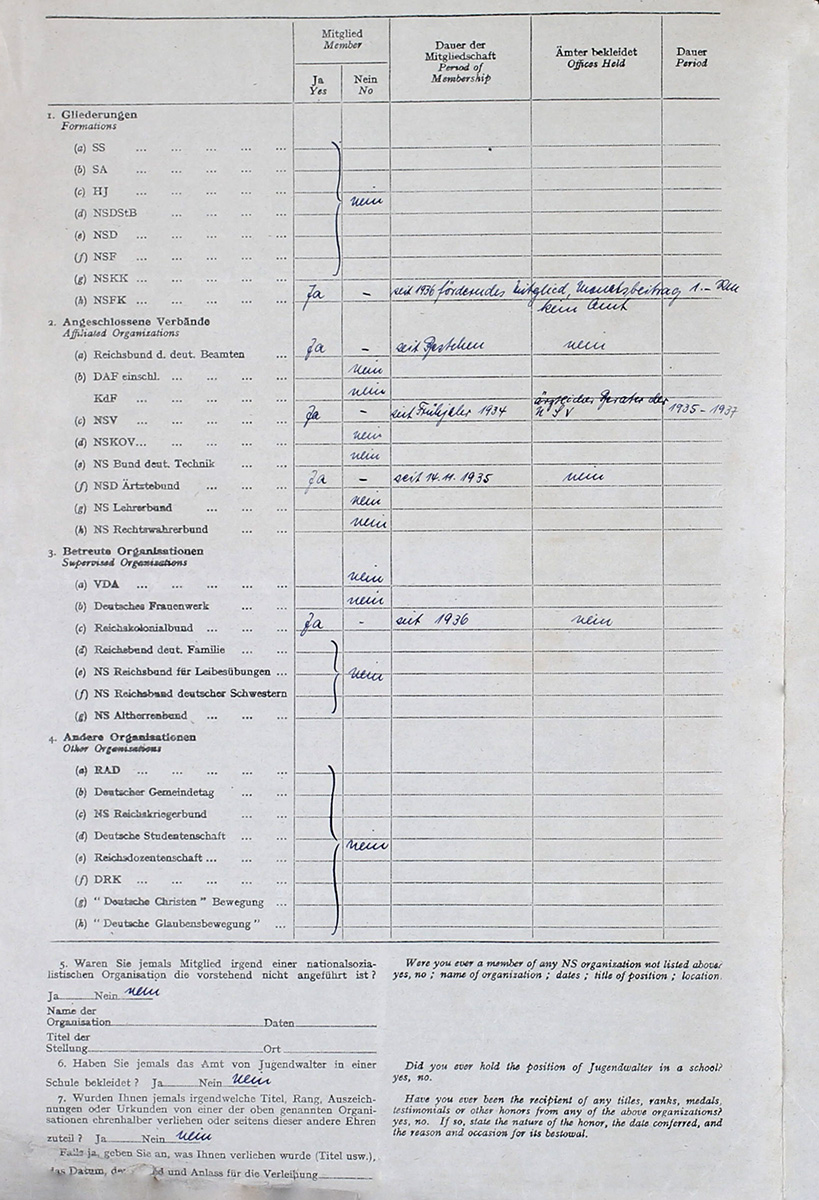 Mitglied Member Dauer der Mitgliedschaft Period of Membership Ämter bekleidet Offices Held Dauer Period
Ja Yes Nein No
1. Gliederungen
Formations
(a) SS ... ... ... ... ...
(b) SA ... ... ... ... ...
(c) HJ ... ... ... ... ... nein
(d) NSDStB ... ... ... ...
(e) NSD ... ... ... ... ...
(f) NSF ... ... ... ... ...
(g) NSKK ... ... ... ... ...
(h) NSFK ... ... ... ... ... Ja – seit 1936 förderndes Mitglied, Monatsbeitrag 1.– RM
kein Amt
2. Angeschlossene Verbände
Affiliated Organizations
(a) Reichsbund d. deut. Beamten ... Ja – seit Bestehen nein
(b) DAF einschl. ... ... ... ... nein
KdF ... ... ... ... nein
(c) NSV ... ... ... ... ... Ja – seit Frühjahr 1934 Berater der NSV 1935 – 1937
(d) NSKOV... ... ... ... ... nein
(e) NS Bund deut. Technik ... ... nein
(f) NSD Ärtstebund ... ... ... Ja – seit 14.11.1935 nein
(g) NS Lehrerbund ... ... ... nein
(h) NS Rechtswahrerbund ... ... nein
3. Betreute Organisationen
Supervised Organisations
(a) VDA ... ... ... ... ... nein
(b) Deutsches Frauenwerk ... ... nein
(c) Reichskolonialbund ... ... ... Ja - seit 1936 nein
(d) Reichsbund deut. Familie ... ...
(e) NS Reichsbund für Leibesübungen ... ... nein
(f) NS Reichsbund deutscher Schwestern
(g) NS Altherrenbund ... ... ...
4. Andere Organisationen
Other Organisations
(a) RAD ... ... ... ... ...
(b) Deutscher Gemeindetag ... ...
(c) NS Reichskriegerbund ... ...
(d) Deutsche Studentenschaft ... ...
(e) Reichsdozentenschaft ... ... ... nein
(f) DRK ... ... ... ... ...
(g) "Deutsche Christen" Bewegung ...
(h) "Deutsche Glaubensbewegung" ...
5. Waren Sie jemals Mitglied irgend einer nationalsozia-
listischen Organisation die vorstehend nicht angeführt ist?
Were you ever a member of any NS organization not listed above?
yes, no ; name of organization ; dates ; title of position ; location.
Ja Nein nein
Name der
Organisation Daten
Titel der
Stellung Ort
6. Haben Sie jemals das Amt von Jugendwalter in einer
Schule bekleidet ? Ja Nein nein
Did you ever hold the position of Jugendwalter in a school?
yes, no.
7. Wurden Ihnen jemals irgendwelche Titel, Rang, Auszeich-
nungen oder Urkunden von einer der oben genannten Organi-
sationen ehrenhalber verliehen oder seitens dieser andere Ehren
zuteil ? Ja Nein nein
Have you ever been the recipient of any titles, ranks, medals,
testimonials or other honors from any of the above organizations?
yes, no. If so, state the nature of the honor, the date conferred, and
the reason and occasion for its bestowal.
Falls ja, geben Sie an, was Ihnen verliehen wurde (Titel usw.),
das Datum, und Anlass für die Verleihung